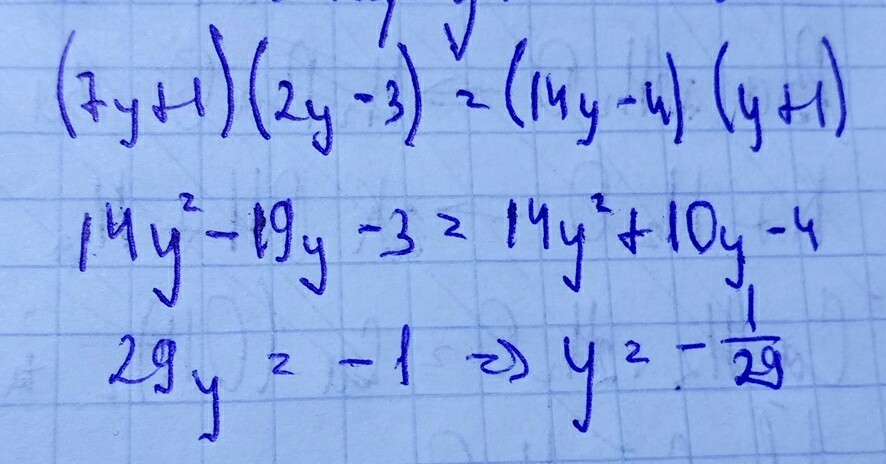 (7y+1)(2y-3) = (14y-4)(y+1)
14y² - 19y - 3 = 14y² + 10y - 4
29y = -1 => y = - 1/29